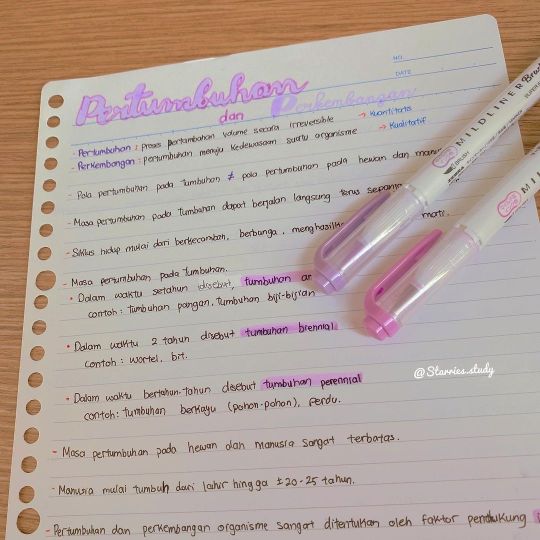 NO
DATE
Pertumbuhan
dan Perkembangan
- Pertumbuhan : Proses pertambahan volume secara irreversible → Kuantitatif
- Perkembangan : pertumbuhan menuju kedewasaan suatu organisme → Kualitatif
- Pola pertumbuhan pada tumbuhan ≠ pola pertumbuhan pada hewan dan
- Masa pertumbuhan pada tumbuhan dapat berjalan langsung terus
- Siklus hidup mulai dari berkecambah, berbunga, mati.
- Masa pertumbuhan pada tumbuhan.
• Dalam waktu setahun disebut, tumbuhan
contoh : tumbuhan pangan, tumbuhan biji-bijian
• Dalam waktu 2 tahun disebut tumbuhan biennial
contoh : wortel, bit.
• Dalam waktu bertahun-tahun disebut tumbuhan perennial
contoh : tumbuhan berkayu (pohon-pohon), perdu.
- Masa pertumbuhan pada hewan dan manusia sangat terbatas.
- Manusia mulai tumbuh dari lahir hingga ± 20-25 tahun.
- Pertumbuhan dan perkembangan organisme sangat ditentukan oleh faktor pendukung
MILDLINER Brush
MILDLINER
@Starries.study